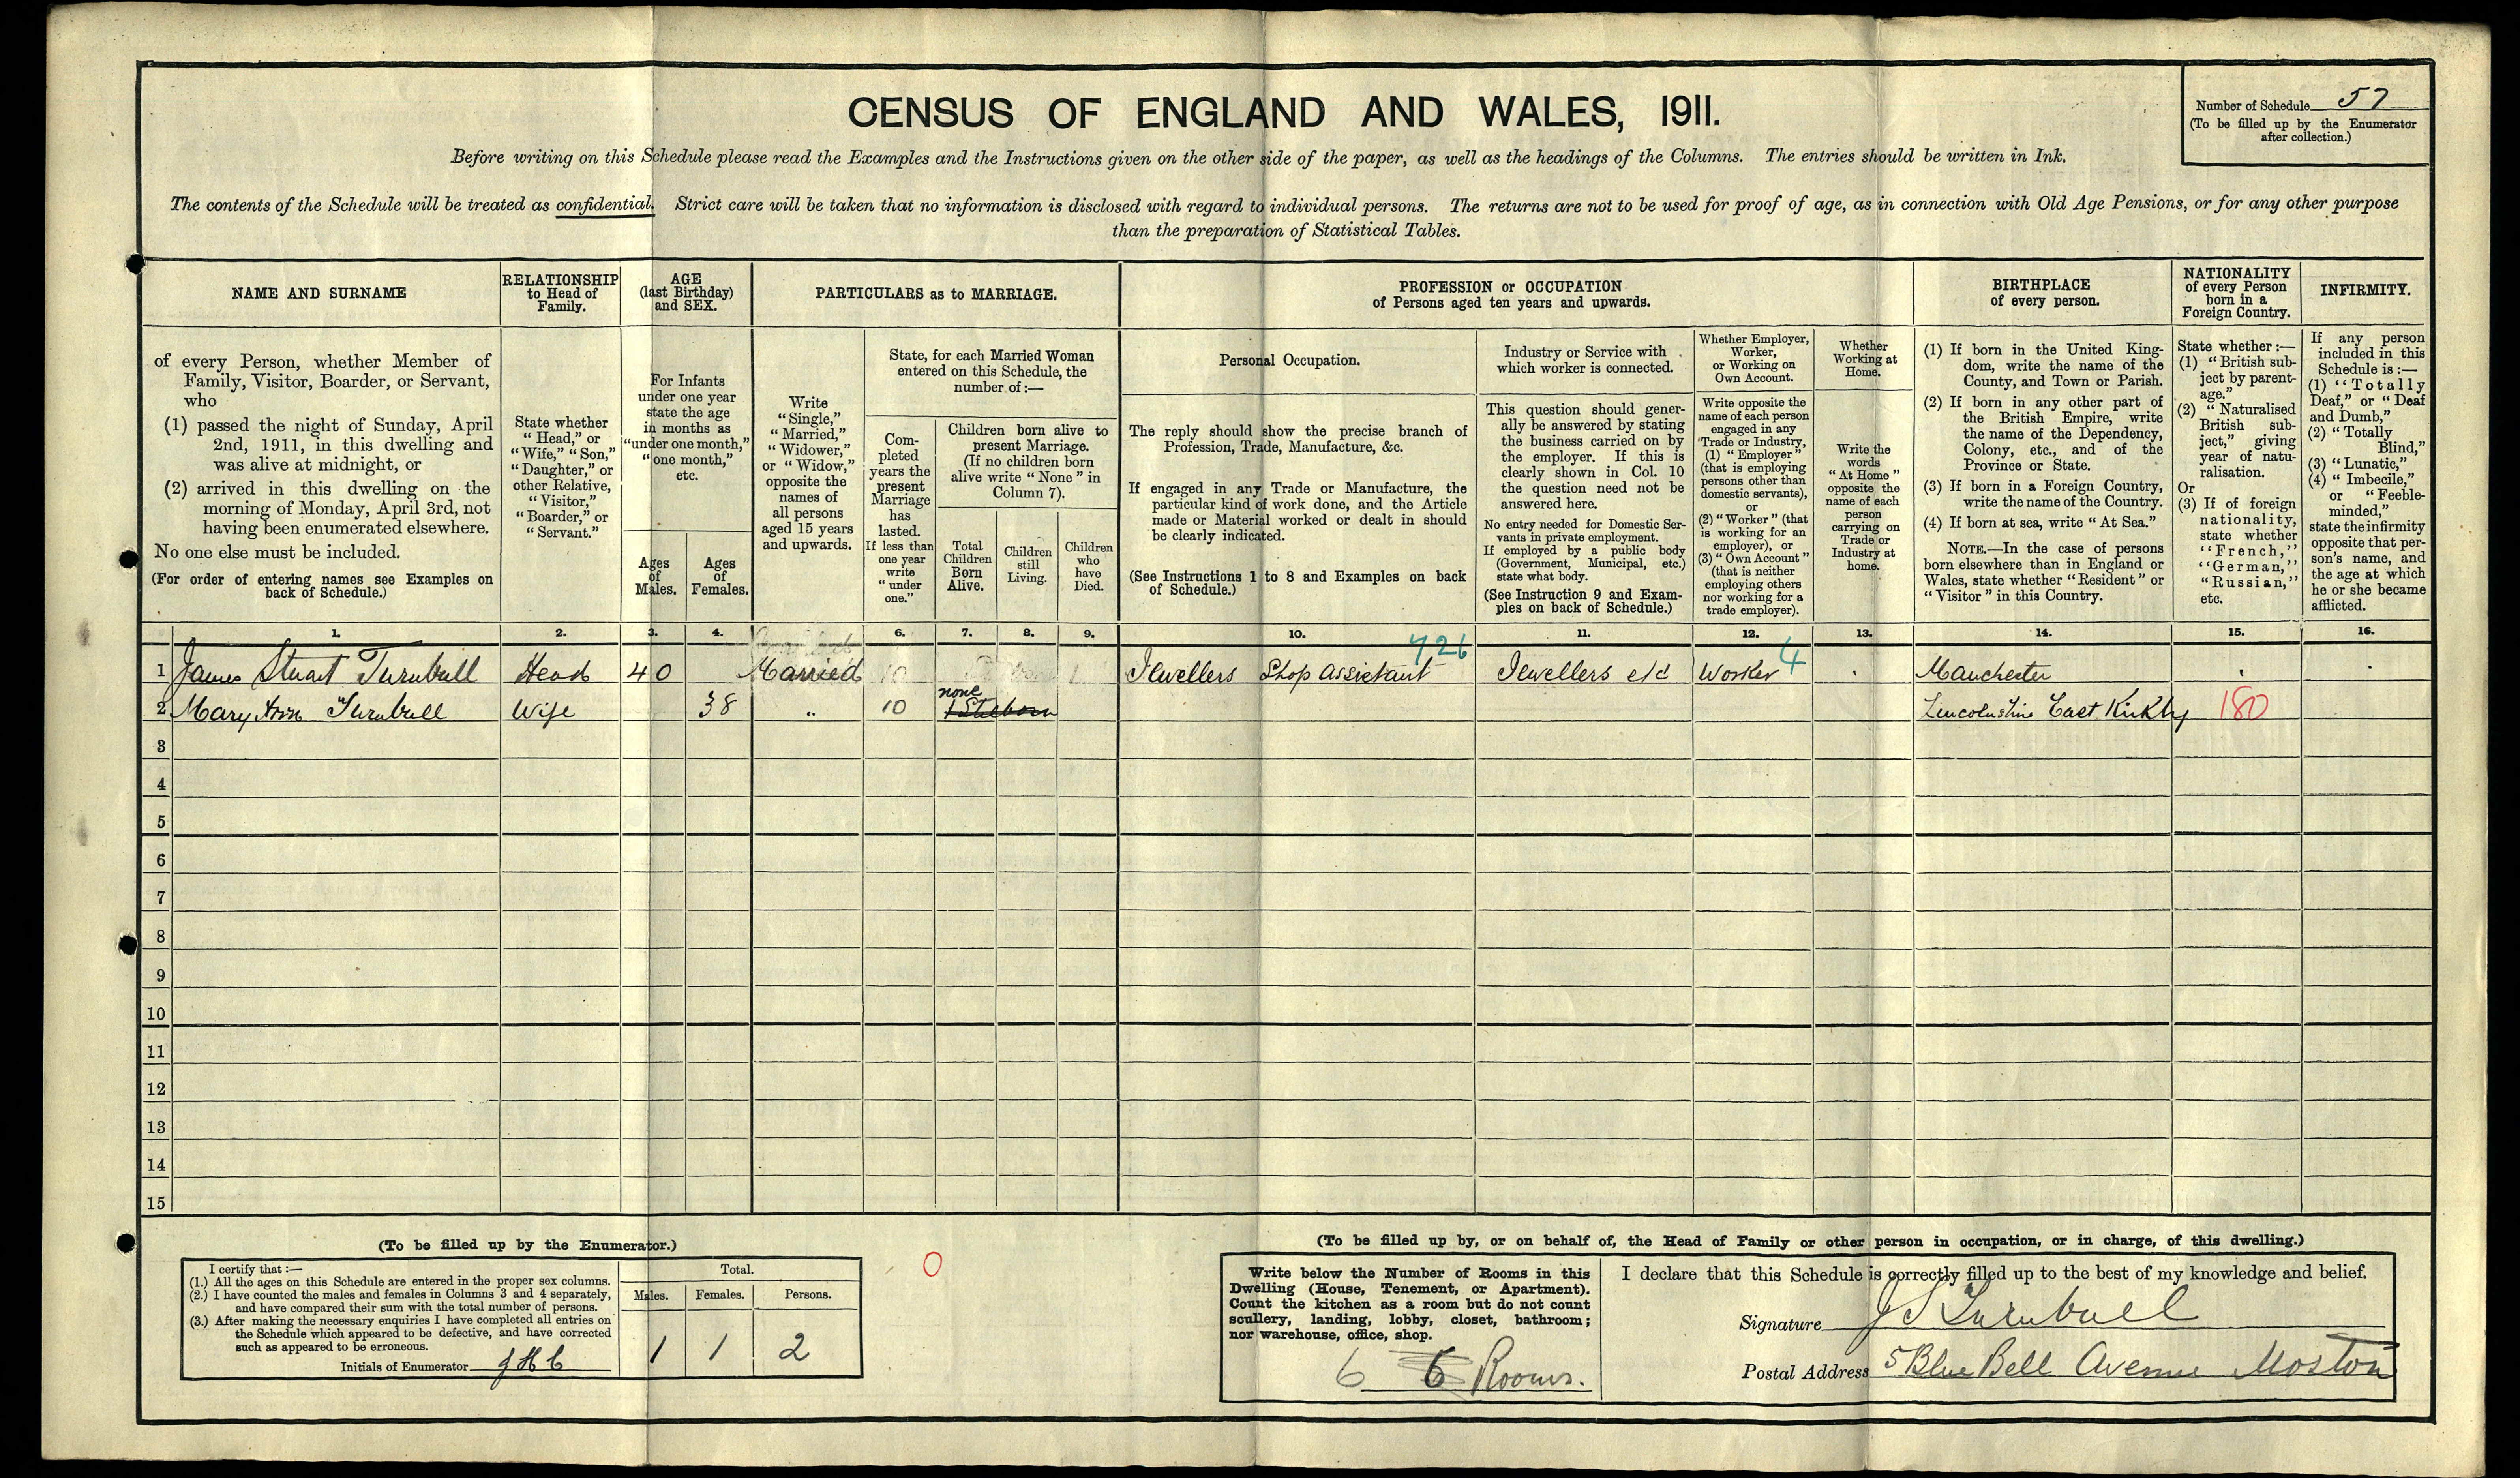 CENSUS OF ENGLAND AND WALES, 1911.
Number of Schedule 57
(To be filled up by the Enumerator
after collection.)
Before writing on this Schedule please read the Examples and the Instructions given on the other side of the paper, as well as the headings of the Columns. The entries should be written in Ink.
The contents of the Schedule will be treated as confidential. Strict care will be taken that no information is disclosed with regard to individual persons. The returns are not to be used for proof of age, as in connection with Old Age Pensions, or for any other purpose
than the preparation of Statistical Tables.
NAME AND SURNAME
of every Person, whether Member of
Family, Visitor, Boarder, or Servant,
who
(1) passed the night of Sunday, April
2nd, 1911, in this dwelling and
was alive at midnight, or
(2) arrived in this dwelling on the
morning of Monday, April 3rd, not
having been enumerated elsewhere.
No one else must be included.
(For order of entering names see Examples on
back of Schedule.)
RELATIONSHIP
to Head of
Family.
State whether
"Head," or
"Wife," "Son,"
"Daughter," or
other Relative,
"Visitor,"
"Boarder," or
"Servant."
AGE
(last Birthday)
and SEX.
For Infants
under one year
state the age
in months as
"under one month,"
"one month,"
etc.
Ages
of
Males.
Ages
of
Females.
PARTICULARS as to MARRIAGE.
Write
"Single,"
"Married,"
"Widower,"
or "Widow,"
opposite the
names of
all persons
aged 15 years
and upwards.
State, for each Married Woman
entered on this Schedule, the
number of:—
Com-
pleted
years the
present
Marriage
has
lasted.
If less than
one year
write
"under
one."
Children born alive to
present Marriage.
(If no children born
alive write "None" in
Column 7).
Total
Children
Born
Alive.
Children
still
Living.
Children
who
have
Died.
PROFESSION or OCCUPATION
of Persons aged ten years and upwards.
Personal Occupation.
The reply should show the precise branch of
Profession, Trade, Manufacture, &c.
If engaged in any Trade or Manufacture, the
particular kind of work done, and the Article
made or Material worked or dealt in should
be clearly indicated.
(See Instructions 1 to 8 and Examples on back
of Schedule.)
Industry or Service with
which worker is connected.
This question should gener-
ally be answered by stating
the business carried on by
the employer. If this is
clearly shown in Col. 10
the question need not be
answered here.
No entry needed for Domestic Ser-
vants in private employment.
If employed by a public body
(Government, Municipal, etc.)
state what body.
(See Instruction 9 and Exam-
ples on back of Schedule.)
Whether Employer,
Worker,
or Working on
Own Account.
Write opposite the
name of each person
engaged in any
Trade or Industry,
(1) "Employer"
(that is employing
persons other than
domestic servants),
or
(2) "Worker" (that
is working for an
employer), or
(3) "Own Account"
(that is neither
employing others
nor working for a
trade employer).
Whether
Working at
Home.
Write the
words
"At Home"
opposite the
name of each
person
carrying on
Trade or
Industry at
home.
BIRTHPLACE
of every person.
(1) If born in the United King-
dom, write the name of the
County, and Town or Parish.
(2) If born in any other part of
the British Empire, write
the name of the Dependency,
Colony, etc., and of the
Province or State.
(3) If born in a Foreign Country,
write the name of the Country.
(4) If born at sea, write "At Sea."
NOTE.—In the case of persons
born elsewhere than in England or
Wales, state whether "Resident" or
"Visitor" in this Country.
NATIONALITY
of every Person
born in a
Foreign Country.
State whether:—
(1) "British sub-
ject by parent-
age."
(2) "Naturalised
British sub-
ject," giving
year of natu-
ralisation.
Or
(3) If of foreign
nationality,
state whether
"French,"
"German,"
"Russian,"
etc.
INFIRMITY.
If any person
included in this
Schedule is:—
(1) "Totally
Deaf," or "Deaf
and Dumb,"
(2) "Totally
Blind,"
(3) "Lunatic,"
(4) "Imbecile,"
or "Feeble-
minded,"
state the infirmity
opposite that per-
son's name, and
the age at which
he or she became
afflicted.
1. 2. 3. 4. 6. 7. 8. 9. 10. 11. 12. 13. 14. 15. 16.
1 James Stuart Turnbull Head 40 Married Jewellers Shop Assistant 726 Jewellers etc Worker 4 Manchester
2 Mary Ann Turnbull Wife 38 " 10 none 1 Stilborn Lincolnshire East Kirkby 180
3
4
5
6
7
8
9
10
11
12
13
14
15
(To be filled up by the Enumerator.)
I certify that:—
(1.) All the ages on this Schedule are entered in the proper sex columns.
(2.) I have counted the males and females in Columns 3 and 4 separately,
and have compared their sum with the total number of persons.
(3.) After making the necessary enquiries I have completed all entries on
the Schedule which appeared to be defective, and have corrected
such as appeared to be erroneous.
Initials of Enumerator
Total.
Males. Females. Persons.
1 1 2
0
(To be filled up by, or on behalf of, the Head of Family or other person in occupation, or in charge, of this dwelling.)
Write below the Number of Rooms in this
Dwelling (House, Tenement, or Apartment).
Count the kitchen as a room but do not count
scullery, landing, lobby, closet, bathroom;
nor warehouse, office, shop.
6 6 Rooms.
I declare that this Schedule is correctly filled up to the best of my knowledge and belief.
Signature J S Turnbull
Postal Address 5 Blue Bell Avenue Moston